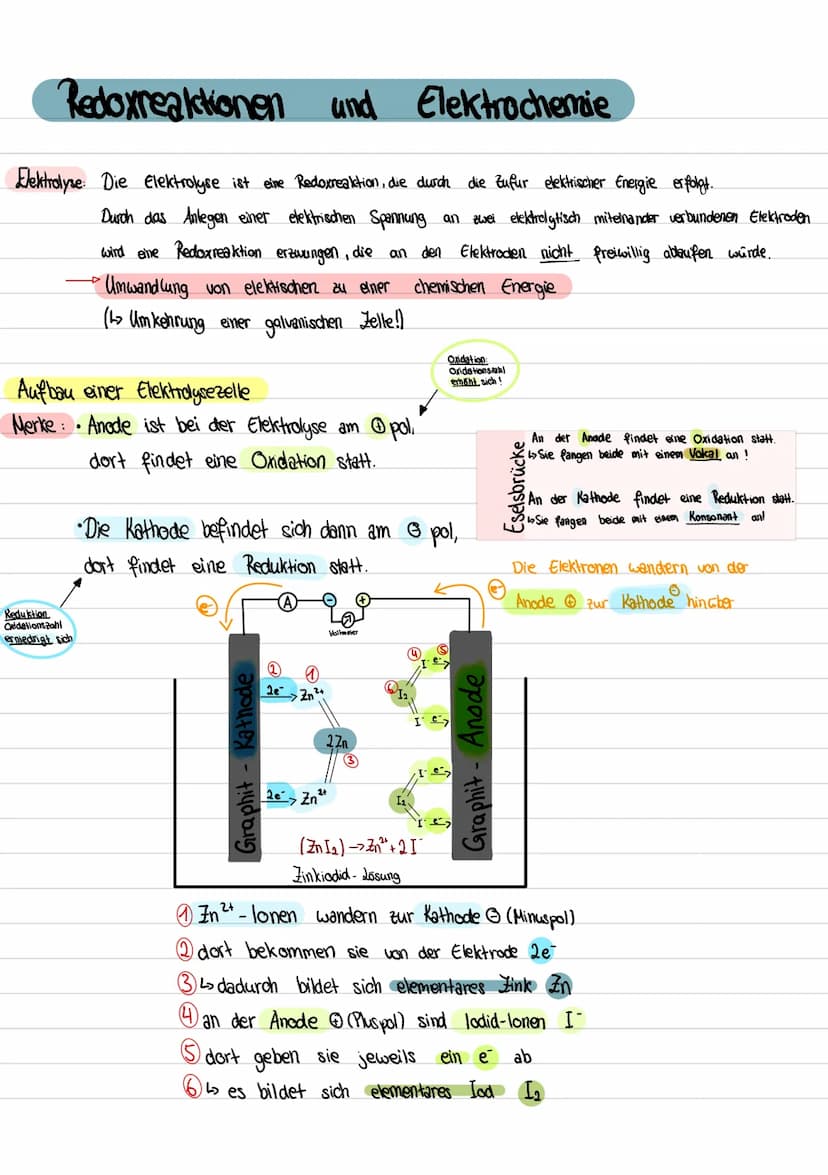 Redoxreaktionen und Elektrochemie
Elektrolyse: Die Elektrolyse ist eine Redoxreaktion, die durch die Zufur elektrischer Energie erfolgt.
Durch das Anlegen einer elektrischen Spannung an zwei elektrolytisch miteinander verbundenen Elektroden
wird eine Redoxreaktion erzwungen, die an den Elektroden nicht freiwillig ablaufen würde.
→ Umwandlung von elektischen zu einer chemischen Energie
(↳ Umkehrung einer galvanischen Zelle!)
Oxidation:
Oxidationszahl
erhöht sich!
Aufbau einer Elektrolysezelle
Merke: · Anode ist bei der Elektrolyse am ⊕ pol,
dort findet eine Oxidation statt.
Eselsbrücke
An der Anode findet eine Oxidation statt.
↳ Sie fangen beide mit einem Vokal an!
An der Kathode findet eine Reduktion statt.
↳ Sie fangen beide mit einem Konsonant an!
· Die Kathode befindet sich dann am ⊖ pol,
dort findet eine Reduktion statt.
Die Elektronen wandern von der
Anode ⊕ zur Kathode ⊖ hinüber
Reduktion
Oxidationszahl
erniedrigt sich
e⁻
A
-
+
e⁻
Voltmeter
Graphit - Kathode
② ①
2e⁻ → Zn²⁺
2Zn
③
2e⁻ → Zn²⁺
④ ⑤
I⁻ e⁻ →
⑥ I₂
I⁻ e⁻ →
I⁻ e⁻ →
I₂
I⁻ e⁻ →
Graphit - Anode
(ZnI₂) → Zn²⁺ + 2I⁻
Zinkiodid - Lösung
① Zn²⁺ - Ionen wandern zur Kathode ⊖ (Minuspol)
② dort bekommen sie von der Elektrode 2e⁻
③ ↳ dadurch bildet sich elementares Zink Zn
④ an der Anode ⊕ (Pluspol) sind Iodid-Ionen I⁻
⑤ dort geben sie jeweils ein e⁻ ab
⑥ ↳ es bildet sich elementares Iod I₂